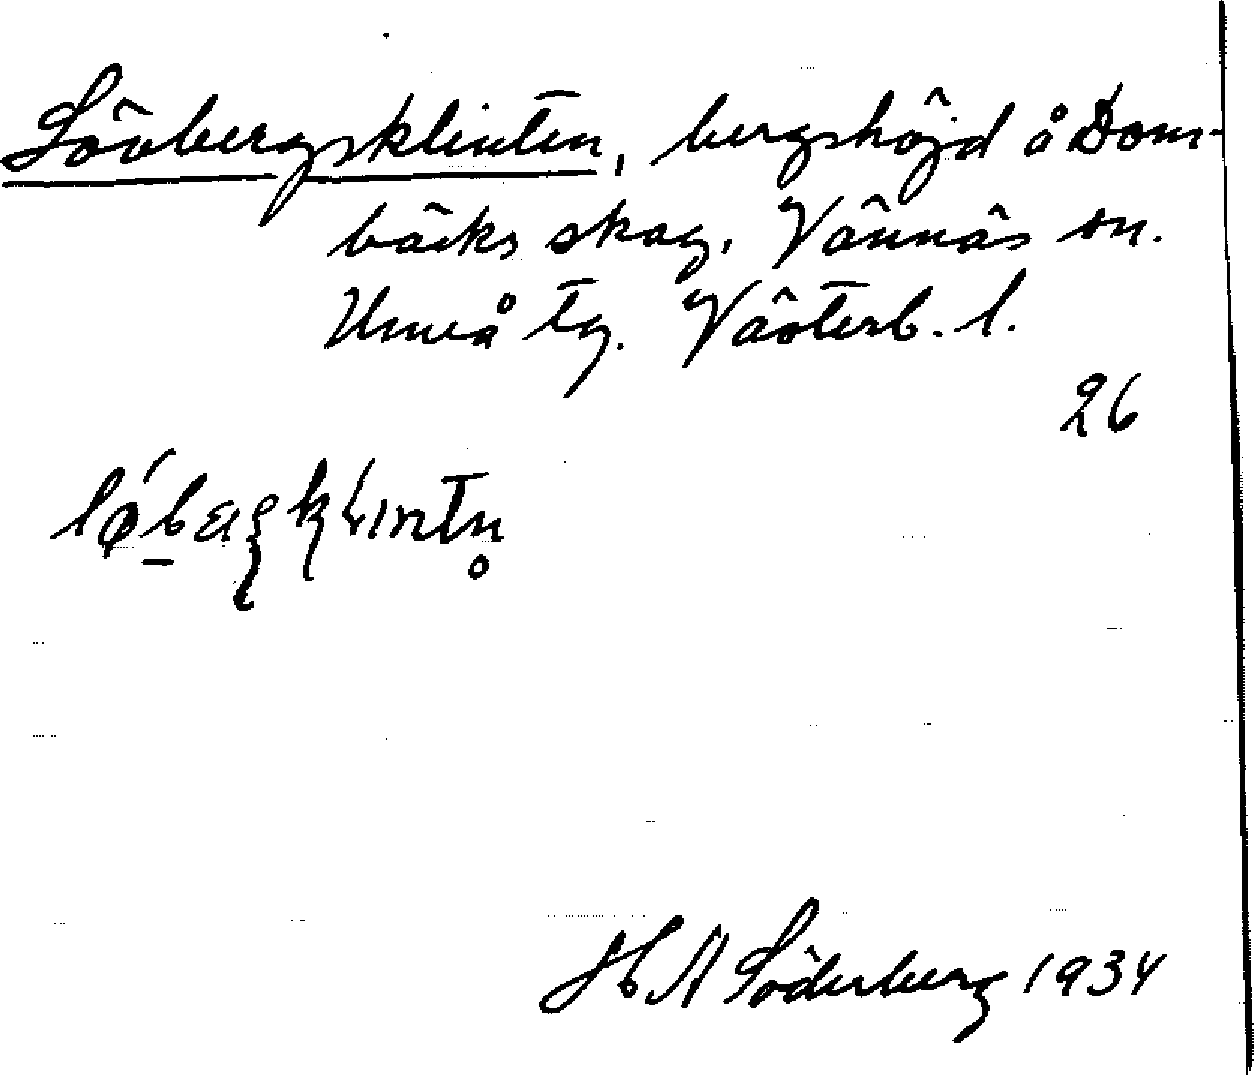 Lövbergsklinten, bergshöjd å Dom-
bäcks skog, Vännäs sn.
Umeå tg. Västerb. l.
26
H A Söderberg 1934